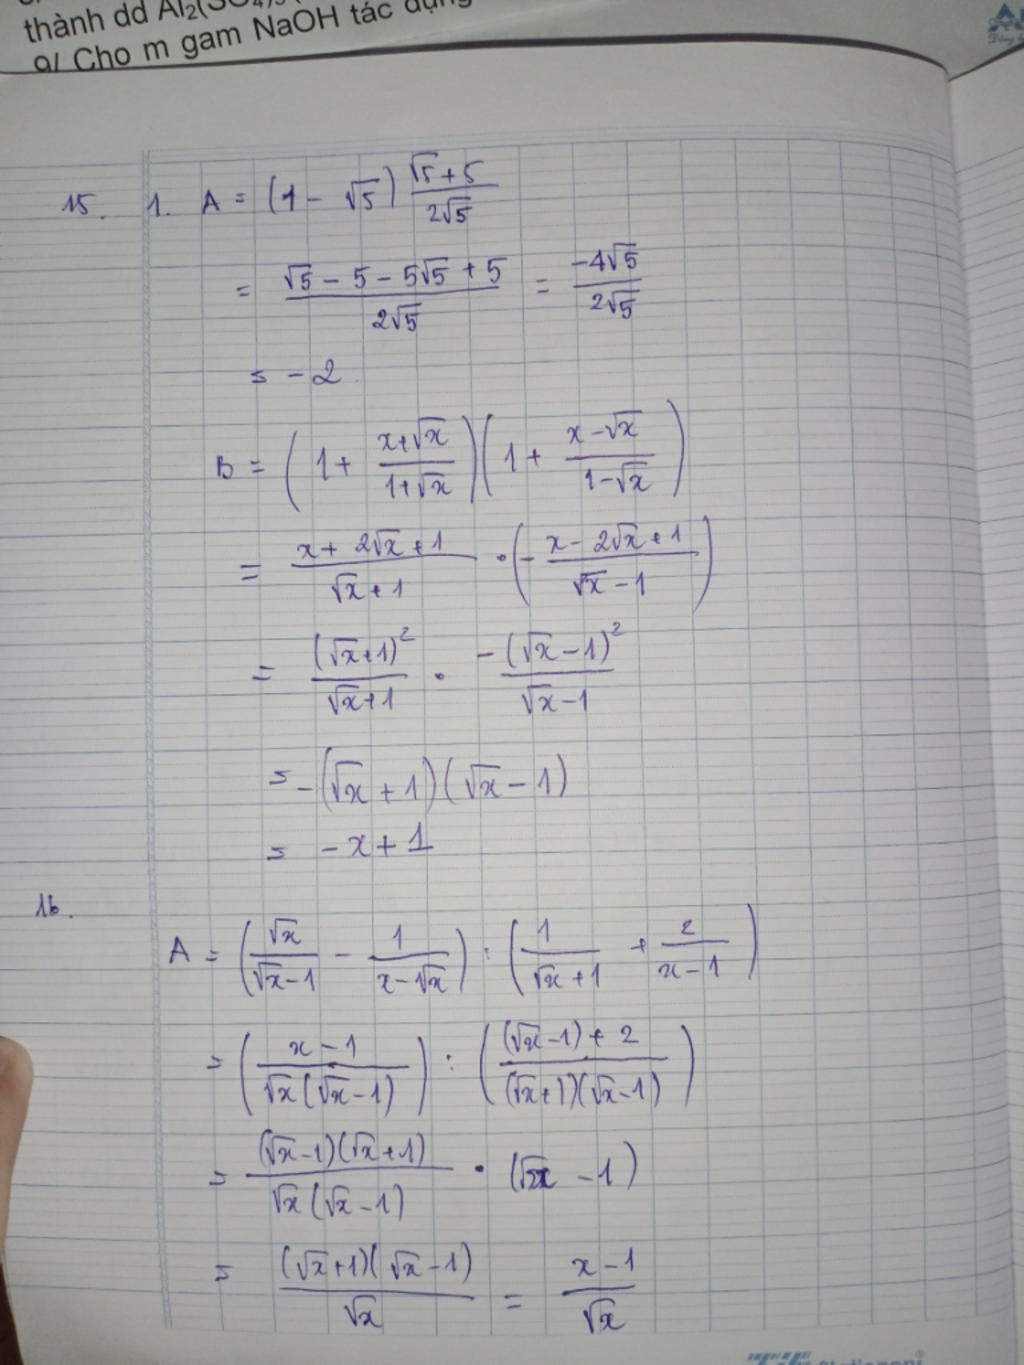 thành dd Al₂(SO₄)₃
9/ Cho m gam NaOH tác dụng
15. 1. A = (1 - √5) (√5 + 5)/(2√5)
= (√5 - 5 - 5√5 + 5)/(2√5) = (-4√5)/(2√5)
= -2
B = (1 + (x+√x)/(1+√x))(1 + (x-√x)/(1-√x))
= (x + 2√x + 1)/(√x + 1) · (- (x - 2√x + 1)/(√x - 1))
= (√x+1)²/(√x+1) · -(√x-1)²/(√x-1)
= -(√x + 1)(√x - 1)
= -x + 1
16.
A = (√x/(√x-1) - 1/(x-√x)) : (1/(√x+1) + 2/(x-1))
= ((x-1)/(√x(√x-1))) : (((√x-1) + 2)/((√x+1)(√x-1)))
= ((√x-1)(√x+1))/(√x(√x-1)) · (√x - 1)
= ((√x+1)(√x-1))/√x = (x-1)/√x